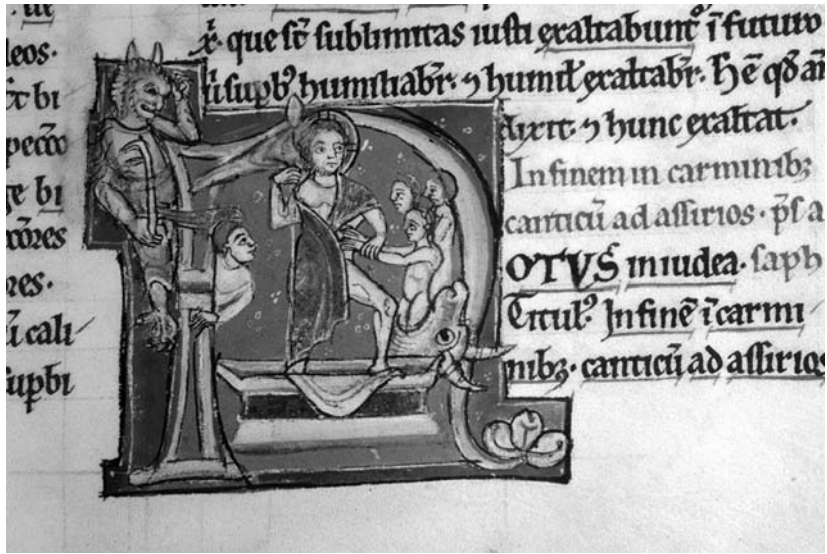 ui
leos.
bi
ge bi
res.
cali
supbi
x̄. que sc̄ sublimitas iusti exaltabunt᷑ ī futuro
supb᷒ humiliabr̄. ⁊ humil̄ exaltabr̄. H̄ ē qđ
dixit. ⁊ hunc exaltat.
In finem in carminibꝫ
canticū ad assirios. p̄s a
OTVS in iudea. saph
Titul᷒. In finē ī carmi
nibꝫ. canticū ad assirios